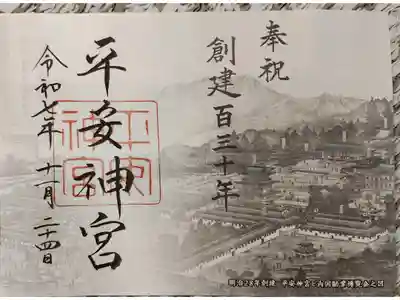 奉祝
創建百三十年
平安神宮
平安神宮
令和七年十一月二十四日
明治28年創建 平安神宮と内国勧業博覧会之図